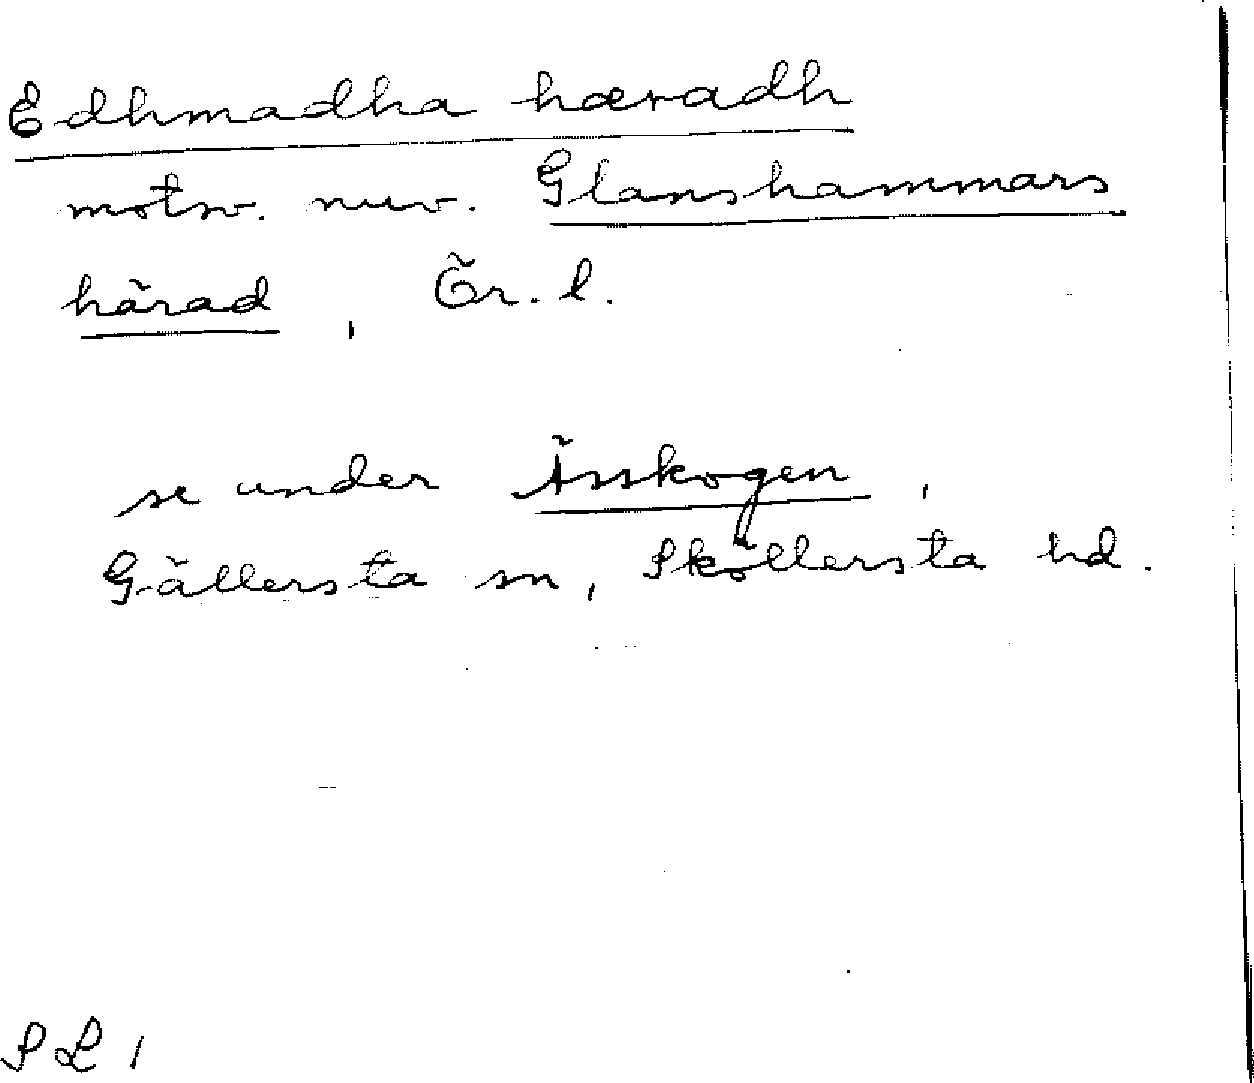 Edhmadha hæradh
motsv. nuv. Glanshammars
härad, Ör. l.
se under Ässkogen,
Gällersta sn, Sköllersta hd.
SL 1